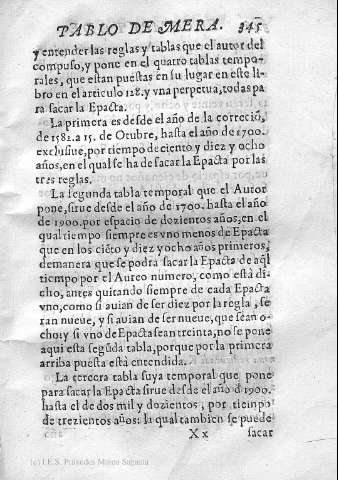 PABLO DE MERA. 345
y entender las reglas y tablas que el autor del
compuso, y pone en el quatro tablas tempo-
rales, que estan puestas en su lugar en este li-
bro en el articulo 128. y vna perpetua, todas pa
ra sacar la Epacta.
La primera es desde el año de la correciō,
de 1582. a 15. de Octubre, hasta el año de 1700.
exclusiue, por tiempo de ciento y diez y ocho
años, en el qual se ha de sacar la Epacta por las
tres reglas.
La segunda tabla temporal que el Autor
pone, sirue desde el año de 1700. hasta el año
de 1900. por espacio de dozientos años, en el
qual tiempo siempre es vno menos de Epacta
que en los ciēto y diez y ocho años primeros,
demanera que se podra sacar la Epacta de aq̄l
tiempo por el Aureo numero, como està di-
cho, antes quitando siempre de cada Epacta
vno, como si auian de ser diez por la regla, se
ran nueue, y si auian de ser nueue, que sean o-
cho: y si vno de Epacta sean treinta, no se pone
aqui esta segūda tabla, porque por la primera
arriba puesta està entendida.
La tercera tabla suya temporal que pone
para sacar la Epacta sirue desde el año d̄ 1900.
hasta el de dos mil y dozientos, por tiempo
de trezientos años: la qual tambien se puede
Xx sacar
(c) I.E.S. Práxedes Mateo Sagasta